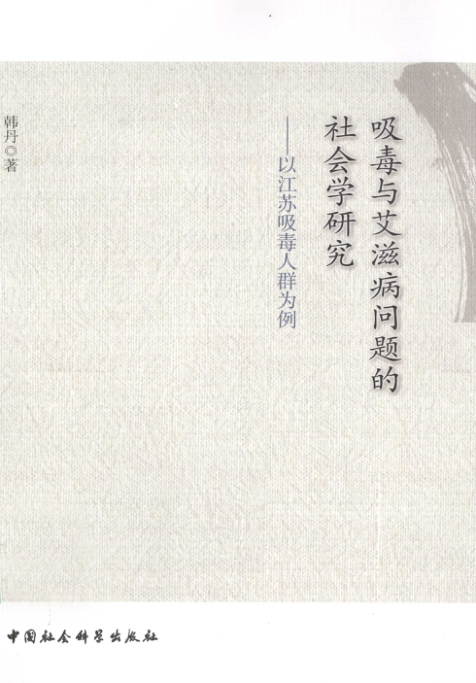 吸毒与艾滋病问题的
社会学研究
——以江苏吸毒人群为例
韩丹◎著
中国社会科学出版社